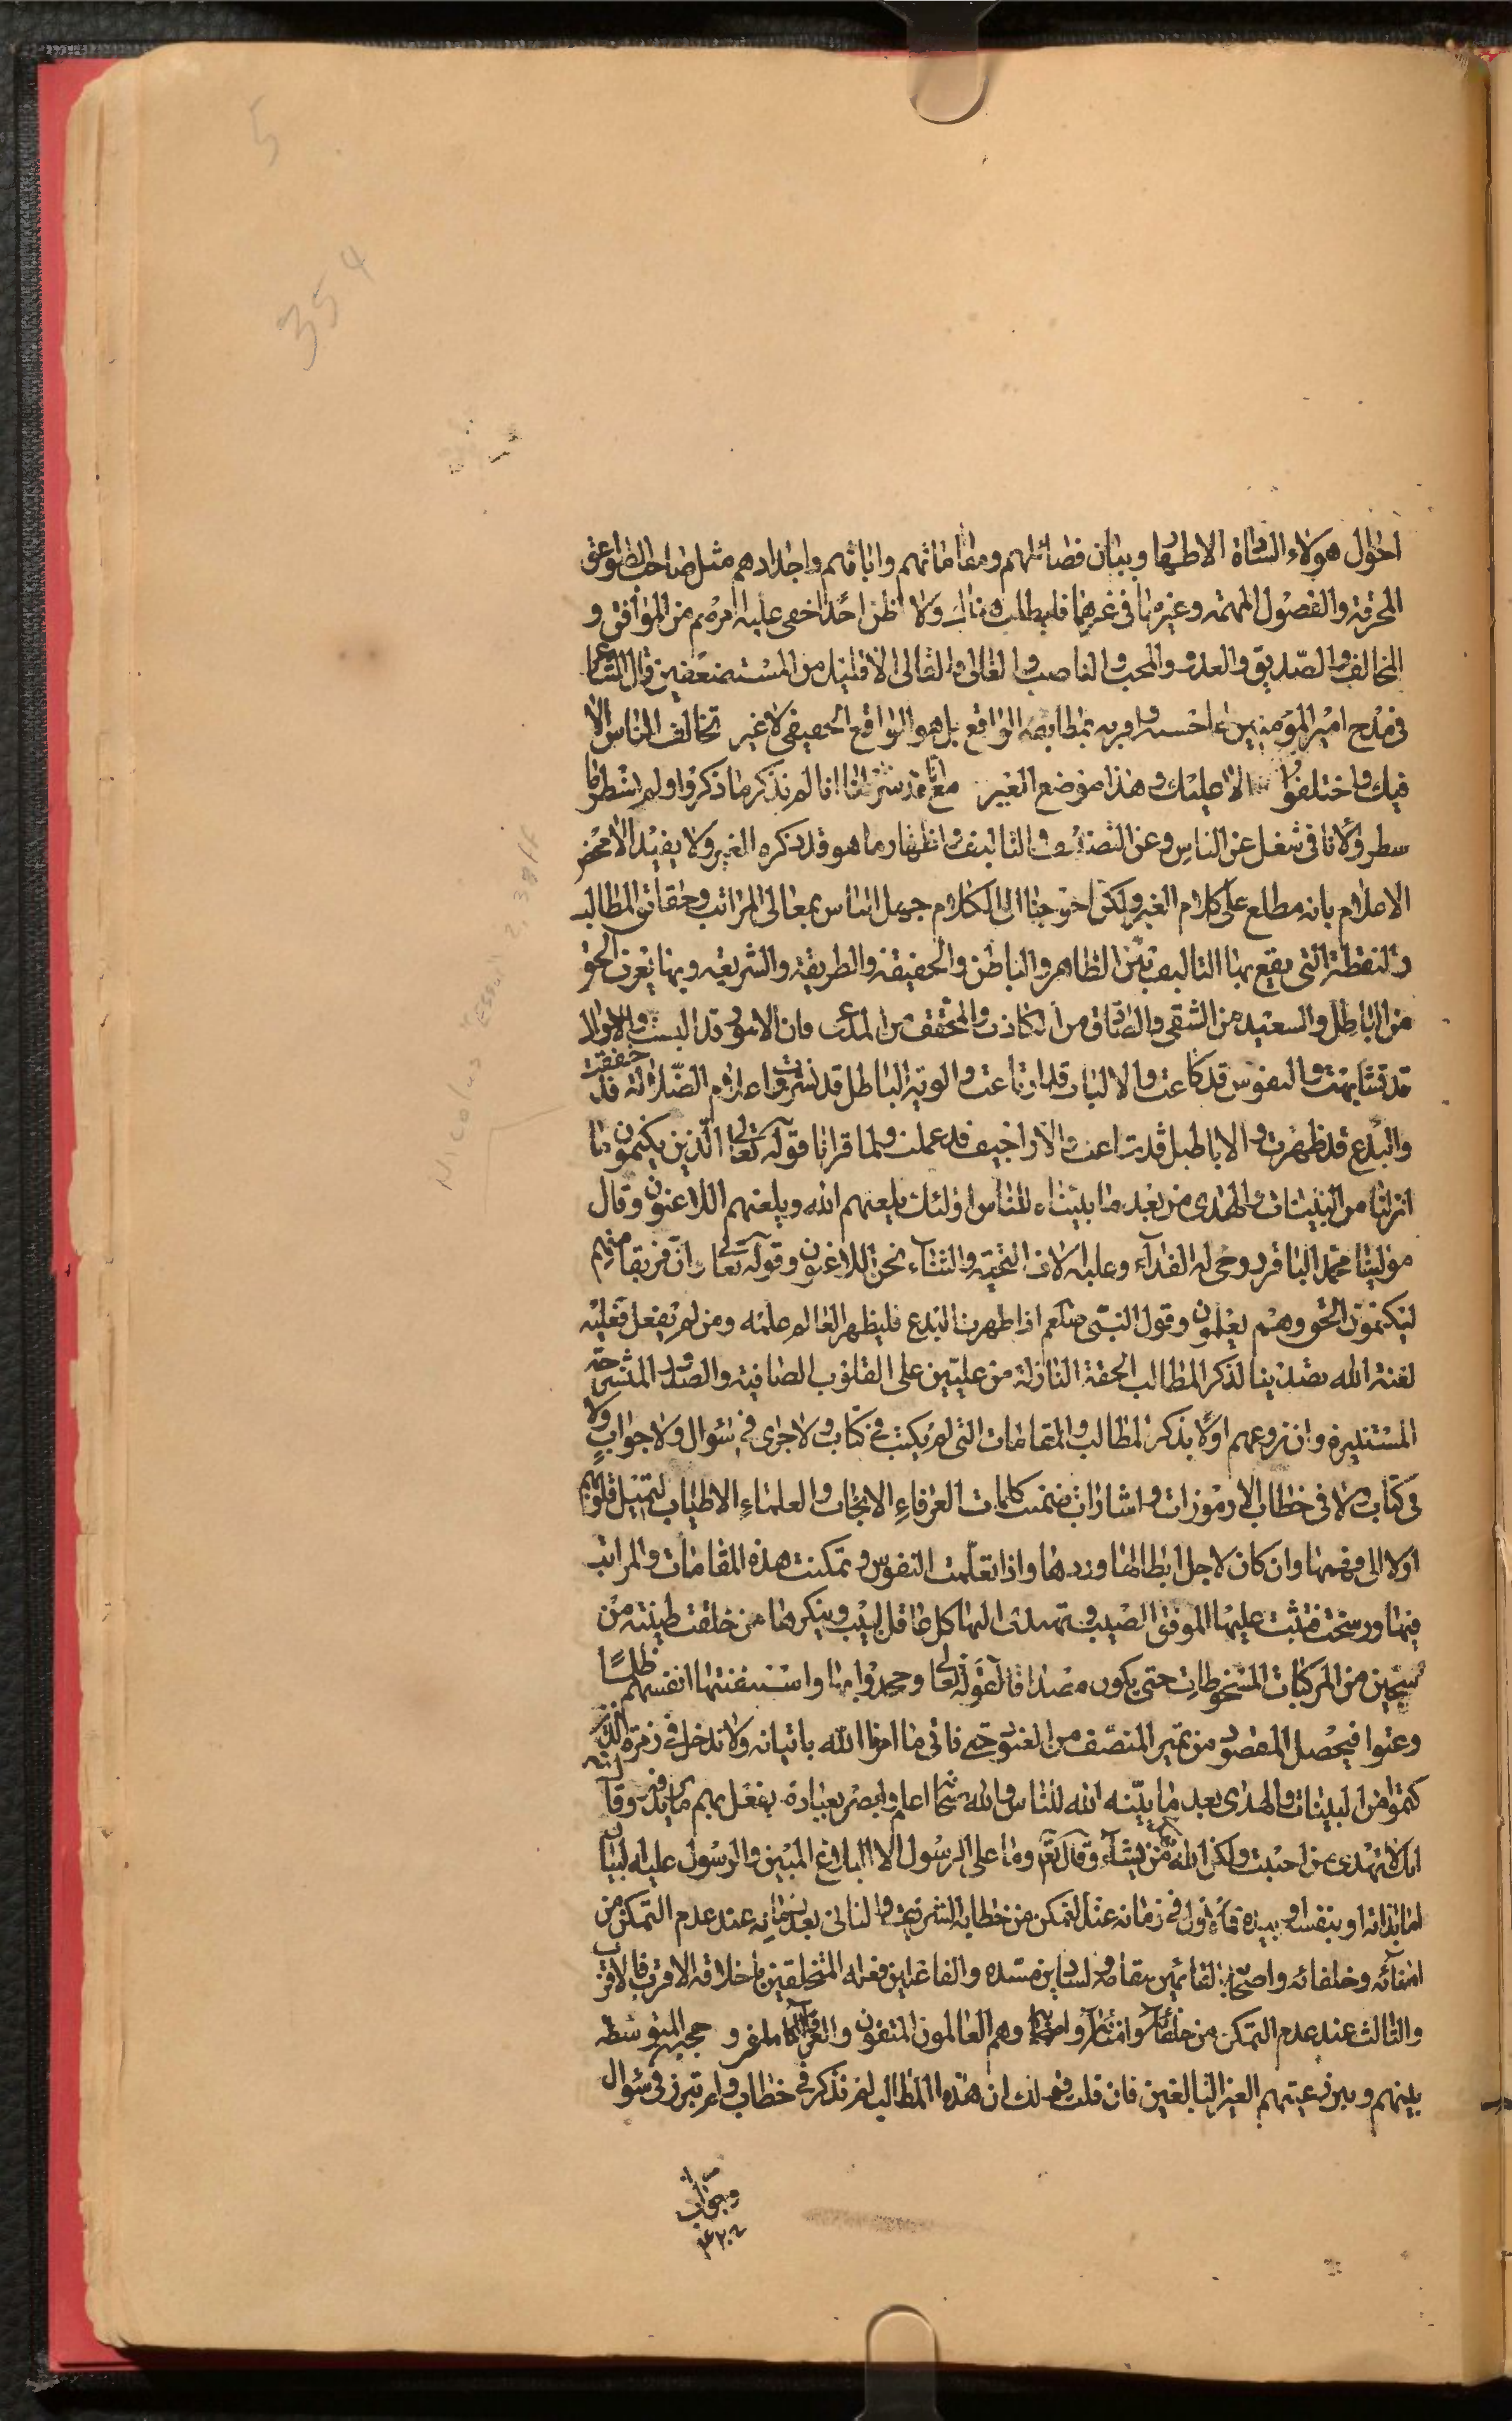 5
354
احوال هولاء السادة الاطهار وبيان فضائلهم ومقاماتهم وابائهم واجدادهم مثل صاحب الصواعق
المحرقة والفصول المهمة وغيرها فی غيرهما فليطلب هناك ولا اظن احدا خفی عليه امرهم من الموافق و
المخالف والصديق والعدو والمحب والناصب والغالی والقالی الا قليل من المستضعفين قال الشاعر
فی مدح امير المؤمنين ع ما احسنه واقربه بمطابقة الواقع بل هو الواقع الحقيقی لا غير تخالف الناس الا
فيك واختلفوا الا عليك وهذا موضع الغير مع انا قد شرطنا انا لم نذكر ما ذكروا ولم نسطر ما
سطروا لانا فی شغل عن الناس وعن التصنيف والتاليف واظهار ما هو قد ذكره الغير ولا يفيد الا محض
الاعلام بانه مطلع علی كلام الغير ولكن احوجنا الی الكلام جهل الناس بمعالی المراتب وحقائق المطالب
والنقطة التی يقع بها التاليف بين الظاهر والباطن والحقيقة والطريقة والشريعه وبها يعرف الحق
من الباطل والسعيد من الشقی والصادق من الكاذب والمحقق من المدعی فان الامور قد البست والاحوال
قد تشابهت والنفوس قد كاعت والالباب قد ارتاعت والوية الباطل قد نشرت واعلام الضلالة قد خفقت
والبدع قد ظهرت والاباطيل قد شاعت والاراجيف قد عملت ولما قرانا قوله تعالی الذين يكتمون ما
انزلنا من البينات والهدی من بعد ما بيناه للناس اولئك يلعنهم الله ويلعنهم اللاعنون وقال
مولينا محمد الباقر روحی له الفدآء وعليه الاف التحية والثنآء نحن اللاعنون وقوله تعالی ان فريقا منهم
ليكتمون الحق وهم يعلمون وقول النبی صلعم اذا ظهرت البدع فليظهر العالم علمه ومن لم يفعل فعليه
لعنة الله تصدينا لذكر المطالب الحقة النازلة من عليين علی القلوب الصافية والصدور المنشرحة
المستنيرة وان نروعهم اولا بذكر المطالب والمقامات التی لم يكتب فی كتاب ولا جری فی سوال ولا جواب ولا
فی كتاب ولا فی خطاب الا رموزات واشارات ضمنت كلمات العرفاء الانجاب والعلماء الاطياب لتميل قلوبهم
اولا الی فهمها وان كان لاجل ابطالها وردها واذا تعلمت النفوس وتمكنت هذه المقامات والمراتب
فيها ورسخت فتثبت عليها الموفق المصيب ويهتدی اليها كل عاقل لبيب وينكرها من خلقت طينته من
سجين من المركبات المسخوطات حتی يكون مصداقا لقوله تعالی وجحدوا بها واستيقنتها انفسهم ظلما
وعتوا فيحصل المقصود من تميز المنصف من العنود حتی ناتی ما امرنا الله باتيانه ولا ندخل فی زمرة الذين
كتموا من البينات والهدی بعد ما بينه الله للناس والله سبحانه اعلم وابصر بعباده يفعل بهم ما يريد وقال
انك لا تهدی من احببت ولكن الله يهدی من يشآء وقال تعالی وما علی الرسول الا البلاغ المبين والرسول عليه البيان
اما بذاته او بنفسه او بيده فالاول فی زمانه عند التمكن من خطابه الشريف والثانی بعد زمانه عند عدم التمكن من
امنآئه وخلفائه واصحابه القائمين مقامه والسادين مسده والفاعلين فعله المتخلقين باخلاقه الاقرب فالاقرب
والثالث عند عدم التمكن من خلفآئه وامنآئه وهم العالمون المتقون والعرفآء الكاملون وحجبهم المتوسطة
بينهم وبين رعيتهم الغير البالغين فان قلت قولك ان هذه المطالب لم تذكر فی خطاب ولم تبرز فی سوال
وجواب